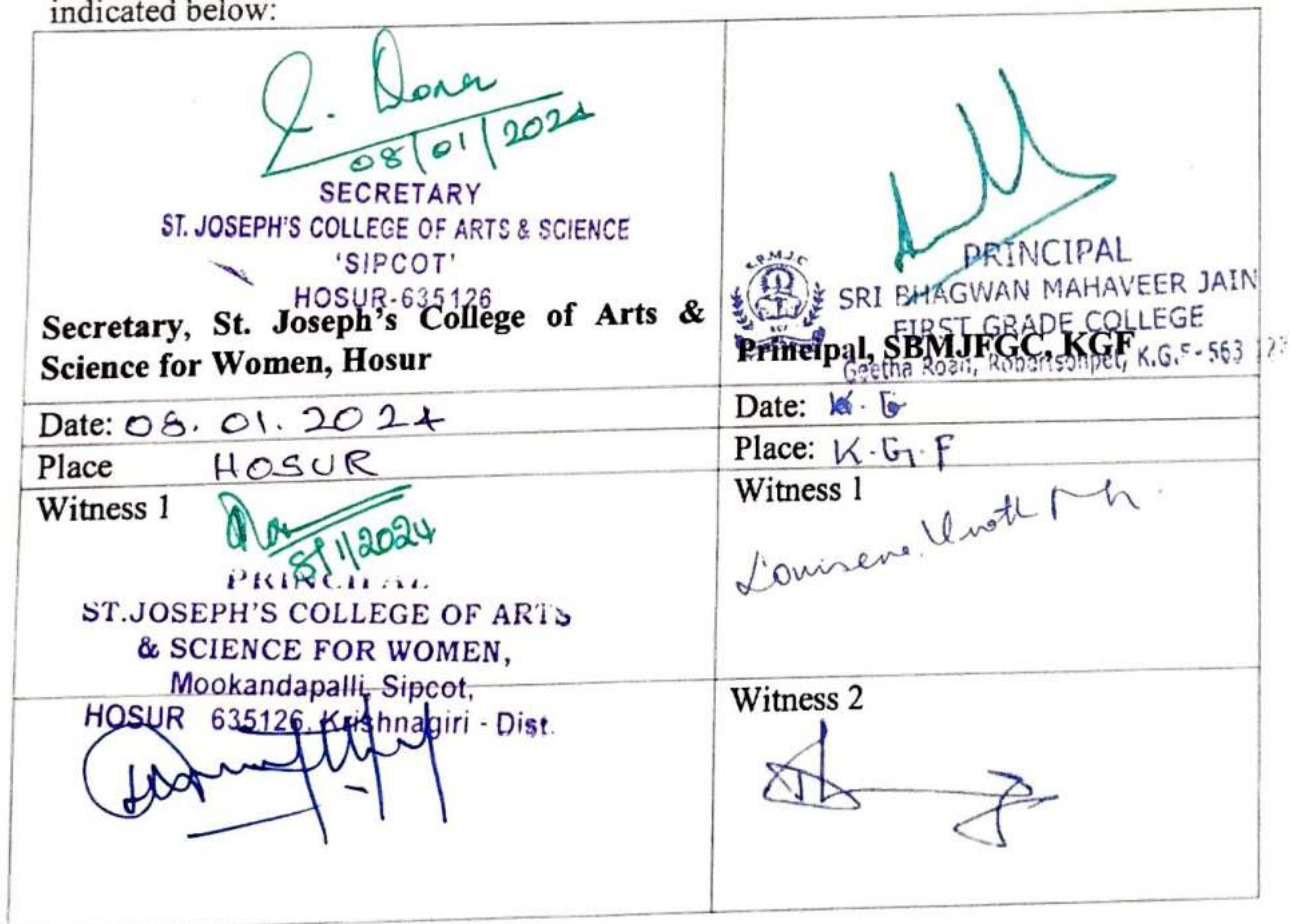 indicated below:
08/01/2024
SECRETARY
ST. JOSEPH'S COLLEGE OF ARTS & SCIENCE
'SIPCOT'
HOSUR-635126
Secretary, St. Joseph's College of Arts &
Science for Women, Hosur
PRINCIPAL
SRI BHAGWAN MAHAVEER JAIN
FIRST GRADE COLLEGE
Geetha Road, Robertsonpet, K.G.F - 563 122
Principal, SBMJFGC, KGF
Date: 08.01.2024
Date:
Place HOSUR
Place: K.G.F
Witness 1
8/1/2024
PRINCIPAL
ST.JOSEPH'S COLLEGE OF ARTS
& SCIENCE FOR WOMEN,
Mookandapalli, Sipcot,
HOSUR 635126, Krishnagiri - Dist.
Witness 1
Witness 2